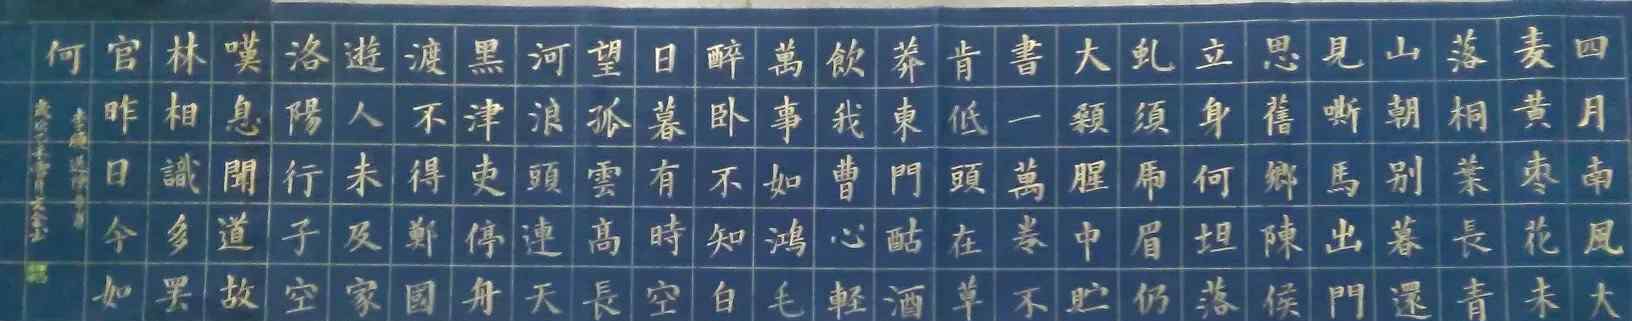 四月南風大
麦黄枣花未
落桐葉長青
山朝别暮還
見嘶馬出門
思舊鄉陳侯
立身何坦落
虬須虎眉仍
大顙腥中贮
書一萬卷不
肯低頭在草
莽東門酤酒
飲我曹心輕
萬事如鴻毛
醉卧不知白
日暮有時空
望孤雲高長
河浪頭連天
黑津吏停舟
渡不得鄭國
遊人未及家
洛陽行子空
嘆息聞道故
林相識多罢
官昨日今如
何
李頎送陳章甫